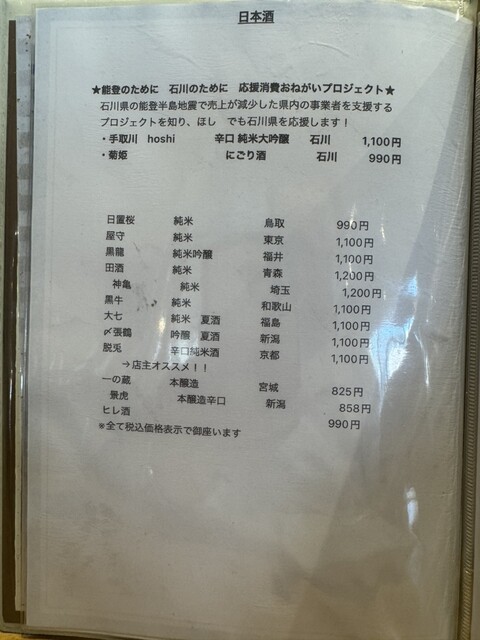 日本酒
★能登のために 石川のために 応援消費おねがいプロジェクト★
石川県の能登半島地震で売上が減少した県内の事業者を支援する
プロジェクトを知り、ほし でも石川県を応援します！
・手取川 hoshi 辛口 純米大吟醸 石川 1,100円
・菊姫 にごり酒 石川 990円
日置桜 純米 鳥取 990円
屋守 純米 東京 1,100円
黒龍 純米吟醸 福井 1,100円
田酒 純米 青森 1,200円
神亀 純米 埼玉 1,200円
黒牛 純米 和歌山 1,100円
大七 純米 夏酒 福島 1,100円
〆張鶴 吟醸 夏酒 新潟 1,100円
脱兎 辛口純米酒 京都 1,100円
→店主オススメ！！
一の蔵 本醸造 宮城 825円
景虎 本醸造辛口 新潟 858円
ヒレ酒 990円
※全て税込価格表示で御座います